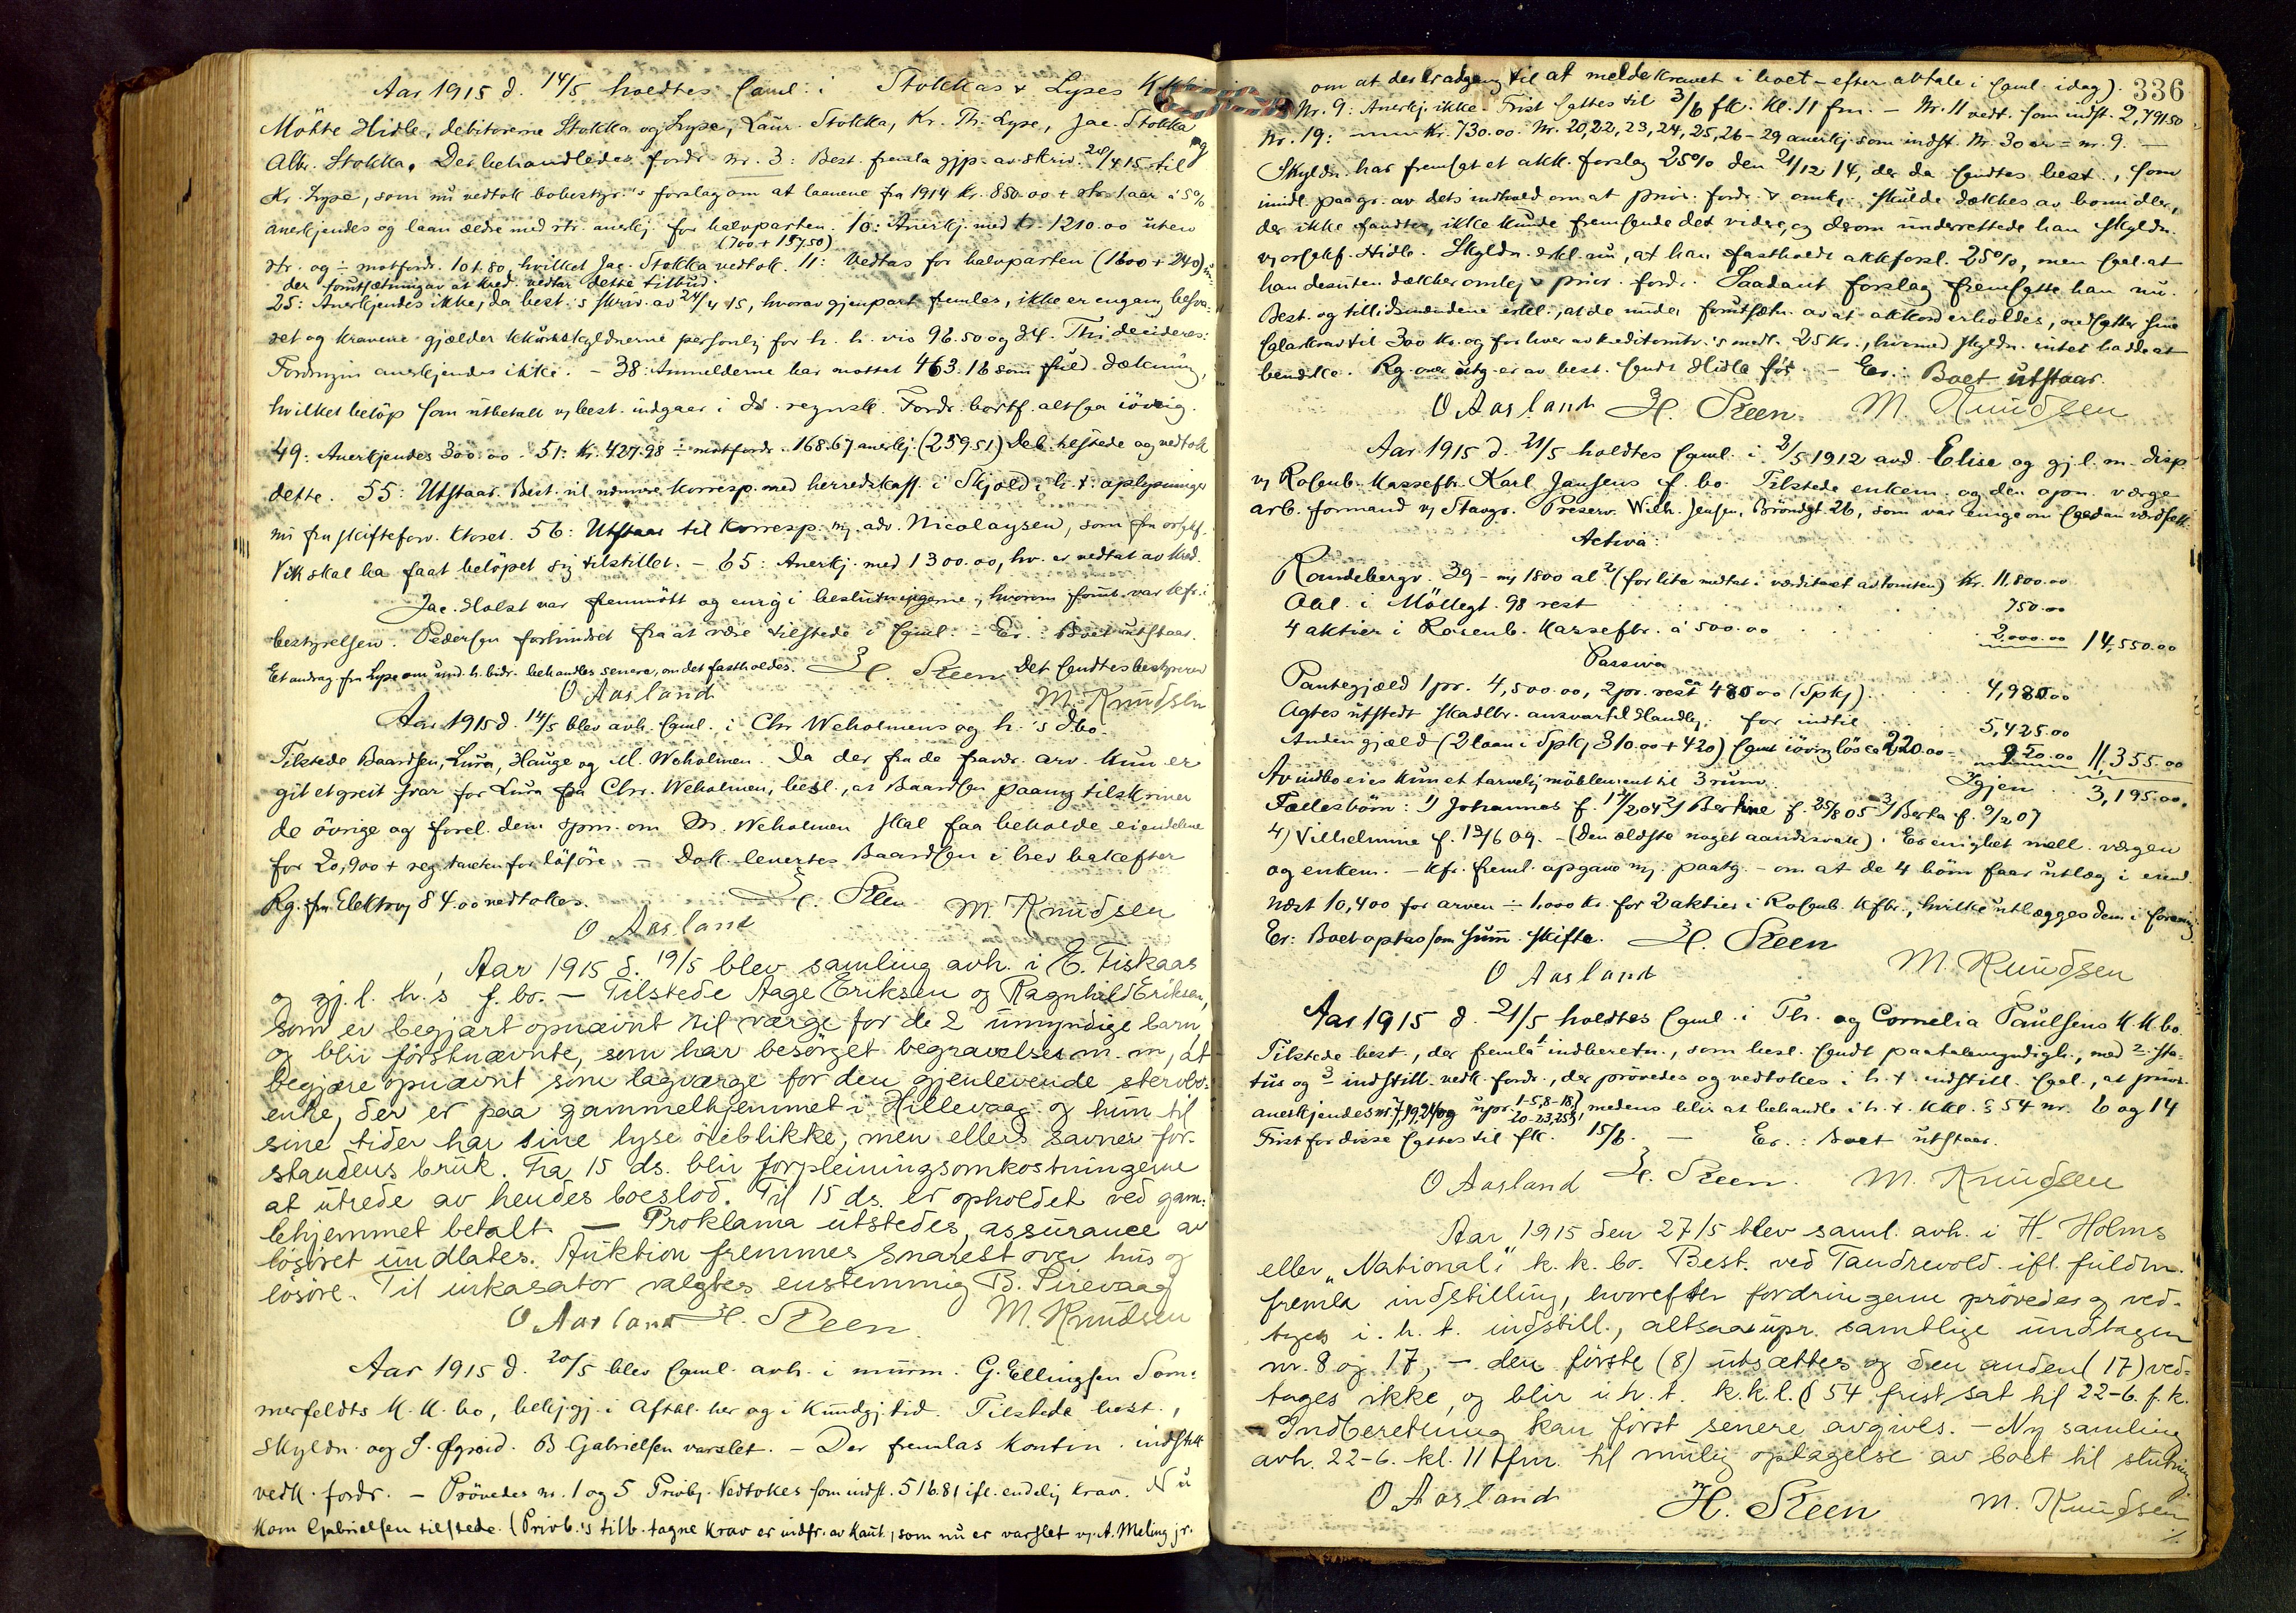 Aar 1915 d. 14/5 holdtes saml. i Stokkas & Lyses K.k.bo
Møtte Hidle, debitorerne Stokka og Lyse, Laur. Stokka, Kr. Th. Lyse, Jac. Stokka og
Alb. Stokka. Der behandledes fordr. nr. 3: Best. fremla gjp. av skriv. 28/4 15 til
Kr. Lyse, som nu vedtok bobestyr.'s forslag om at laanene fra 1914 kr. 850.00 + rtr. 1 aar à 5%
anerkjendes og laan ældre med rtr. anerkj. for halvparten. 10: Anerkj. med kr. 1210.00 uten
(700 + 157.50)
rtr. og ÷ motfordr. 101.80, hvilket Jac. Stokka vedtok. 11: Vedtas for halvparten (1600 + 240) un-
der forutsætning av at kred. vedtar dette tilbud.
25: Anerkjendes ikke, da best.'s skriv. av 24/4 15, hvorav gjenpart fremles, ikke er engang besva-
ret og kravene gjælder kkursskyldnerne personlig for h. h. vis 96.50 og 34. Thi decideres:
Fordringen anerkjendes ikke. - 38: Anmelderne har mottat 463.18 som fuld dækning,
hvilket beløp som utbetalt v/ best. indgaar i ds. regnsk. Fordr. bortf. altsaa iøvrig.
49: Anerkjendes 300.00. 51: Kr. 427.98 ÷ motfordr. 168.67 anerkj. (259.51) Deb. tilstede og vedtok
dette. 55: Utstaar. Best. vil nærmere korresp. med herredskass. i Skjold i h. t. oplysninger
nu fra skifteforv. ktoret. 56: Utstaar til korresp. m/ adv. Nicolaysen, som fra orsakf.
Vik skal ha faat beløpet sig tilstillet. - 65: Anerkj. med 1300.00, hv. er vedtat av kred.
Jac. Holst var fremmøtt og enig i beslutningerne, hvorom forut var kfr. i
bestyrelsen. Pedersen forhindret fra at være tilstede i saml. - Er: Boet utstaar.
Et andrag fra Lyse om und. h. bidr. behandles senere, om det fastholdes. H. Steen Det sendtes bestyreren
O Aasland M. Knudsen
Aar 1915 d. 14/5 blev avh. saml. i Chr. Weholmens og h.'s dbo.
Tilstede Baardsen, Lura, Hauge og M. Weholmen. Da der fra de fravær. arv. kun er
git et greit svar for Lura fra Chr. Weholmen, besl., at Baardsen paany tilskriver
de øvrige og forel. dem spm. om M. Weholmen skal faa beholde eiendelene
for 20,900 + reg. taksten for løsøre. - Dok. levertes Baardsen i brev bakefter
Rg. fra Elektrv. 84.00 vedtokes. H. Steen M. Knudsen
O Aasland
Aar 1915 d. 19/5 blev samling avh. i E. Fiskaas
og gj. l. h.s f. bo. - Tilstede Aage Eriksen og Ragnhild Eriksen,
som er begjært opnævnt til værge for de 2 umyndige barn,
og blir førstnævnte, som har besørget begravelsen m. m, at
begjære opnævnt som lagværge for den gjenlevende stervbo-
enke, der er paa gammelhjemmet i Hillevaag og hun til
sine tider har sine lyse øieblikke, men ellers savner for-
standens bruk. Fra 15 ds. blir forpleiningsomkostningerne
at utrede av hendes boeslod. Til 15 ds. er opholdet ved gam-
lehjemmet betalt. - Proklama utstedes, assurance av
løsøret undlates. Auktion fremmes snarest over hus og
løsøre. Til inkasator valgtes enstemmig B. Sirevaag
O Aasland H. Steen. M. Knudsen
Aar 1915 d. 20/5 blev saml. avh. i murm. G. Ellingsen Som-
merfeldts K.K. bo, bekjgj. i Aftbl. her og i Kundgj. tid. Tilstede best.,
skyldn. og S. Øgreid. B Gabrielsen varslet. - Der fremlas kontin. indstill
vedk. fordr. - Prøvedes nr. 1 og 5 Privbj. Vedtokes som indst. 516.81 ifl. endelig krav. Nu
kom Gabrielsen tilstede. (Privb.'s tilb. tagne krav er indfr. av kaut., som nu er varslet v/ A. Meling jr.
336
om at der er adgang til at melde kravet i boet - efter avtale i saml. idag).
Nr. 9: Anerkj. ikke. Frist sattes til 3/6 fk. kl. 11 fm. - Nr. 11 vedt. som indst. 2,791.50
Nr. 19: Kr. 730.00. Nr. 20, 22, 23, 24, 25, 26 - 29 anerkj. som indst. Nr. 30 er = nr. 9. -
Skyldn. har fremsat et akk. forslag 25% den 21/12 14, der da sendtes best., som
imidl. paagr. av dets indhold om at prior. fordr. & omk. skulde dækkes av bomidler,
der ikke fandtes, ikke kunde fremsende det videre, og derom underrettede han skyldn.
v/ orsakf. Hidle. Skyldn. erkl. nu, at han fastholdt akkforsl. 25%, men saal. at
han desuten dækker omk. & prior. fordr. Saadant forslag fremsatte han nu.
Best. og tillidsmændene erkl., at de under forutsætn. av at akkord erholdes, nedsætter sine
salærkrav til 300 kr. og for hver av kreditorutv.'s medl. 25 Kr., hvorved skyldn. intet hadde at
bemerke. Rg. over utg. er av best. sendt Hidle før. - Er: Boet utstaar.
O Aasland H. Steen. M. Knudsen
Aar 1915 d. 21/5 holdtes saml. i 2/5 1912 avd. Elise og gj. l. m. disp.
v/ Rosenb. kassefbr. Karl Jansens f. bo. Tilstede enkem. og den opn. værge
arb. formand v/ Stavgr. Preserv. Wilh. Jensen, Brøndgt. 26, som var enige om saadan værdsætt.
Activa:
Roundebergv. 39 - m/ 1800 al² (for lite medtat i værditaxt av tomten) kr. 11,800.00
Obl. i Møllegt. 98 rest 750.00
4 aktier i Rosenb. kassefbr. à 500.00 2,000.00 14,550.00
Passiva
Pantegjæld 1 pr. 4,500.00, 2 pr. rest 480.00 (Spkj). 4,980.00
Agtes utstedt skadlbr. ansvar til Handlbj. for indtil 5,425.00
Anden gjæld (2 laan i Spkj 310.00 + 420) samt iøvrig løs ca 220.00 - 950.00 11,355.00
Av indbo eies kun et tarvelig møblement til 3 rum. Igjen 3,195.00.
Fællesbørn: 1) Johannes f. 17/2 04 2) Berthine f. 25/8 05 3) Berta f. 9/2 07
4) Vilhelmine f. 13/6 09. - (Den ældste noget aandssvak). Er enighet mell. værgen
og enkem. - kfr. freml. opgave m/ paateg. - om at de 4 børn faar utlæg i eiend.
næst 10,400 for arven ÷ 1,000 kr. for 2 aktier i Rosenb. kfbr., hvilke utlægges dem i forening.
Er: Boet optas som sum. skifte. H. Steen
O Aasland M. Knudsen
Aar 1915 d. 21/5 holdtes saml. i Th. og Cornelia Paulsens K.K. bo.
Tilstede best., der fremla 1 indberetn., som besl. sendt paatalemyndigh., med 2 sta-
tus og 3 indstill. vedk. fordr., der prøvedes og vedtokes i h. t. indstill. saal., at prior.
anerkjendes nr. 7, 19, 24 og upr. 1-5, 8-18, 20-23, 25 medens blir at behandle i h. t. kkl. § 54 nr. 6 og 14
Frist for disse sattes til fk. 15/6. - Er: Boet utstaar.
O Aasland H. Steen. M. Knudsen
Aar 1915 den 27/5 blev saml. avh. i H. Holms
eller „National"s k. k. bo. Best. ved Tandrevold ifl. fuldm.
fremla indstilling, hvorefter fordringerne prøvedes og ved-
toges i. h. t. indstill., altsaa upr. samtlige undtagen
nr. 8 og 17, - den første (8) utsættes og den anden (17) ved-
tages ikke, og blir i h. t. k.k.l. § 54 frist sat til 22-6. f. k.
- Indberetning kan først senere avgives. - Ny samling
avh. 22-6. kl. 11 fm. til mulig optagelse av boet til slutning
O Aasland H. Steen M. Knudsen